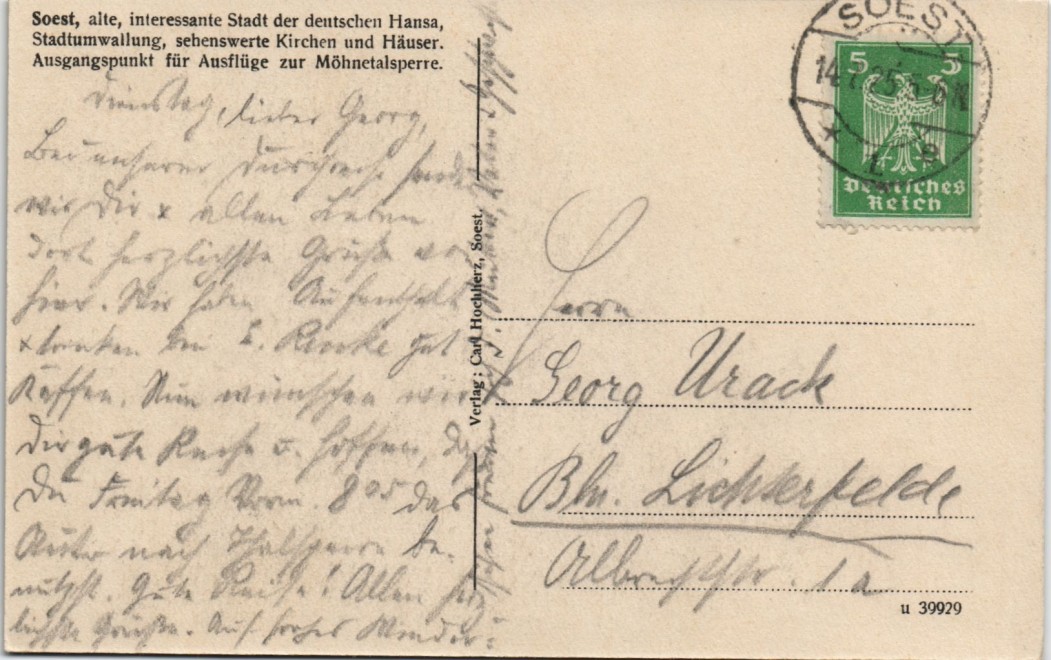 Soest, alte, interessante Stadt der deutschen Hansa,
Stadtumwallung, sehenswerte Kirchen und Häuser.
Ausgangspunkt für Ausflüge zur Möhnetalsperre.
Dienstag, lieber Georg,
Bei unserer Durchreise senden
wir Dir x allen Lieben
dort herzlichste Grüße von
hier. Wir haben Aufenthalt
x tranken bei gut
Kaffee. Nun wünschen wir
Dir gute Reise u. hoffen, daß
Du Freitag Vorm. 8 05 das
Auto nach Thalsperre be-
nutzst. Gute Reise! Allen herz
lichste Grüße. Auf frohes Wieder-
sehen
Verlag: Carl Hochherz, Soest.
SOEST
14.7.25.5-6N
* L e
5 5
Deutsches
Reich
Herrn
Georg Urack
Bln. Lichterfelde
Albrechtstr. 1a
u 39929